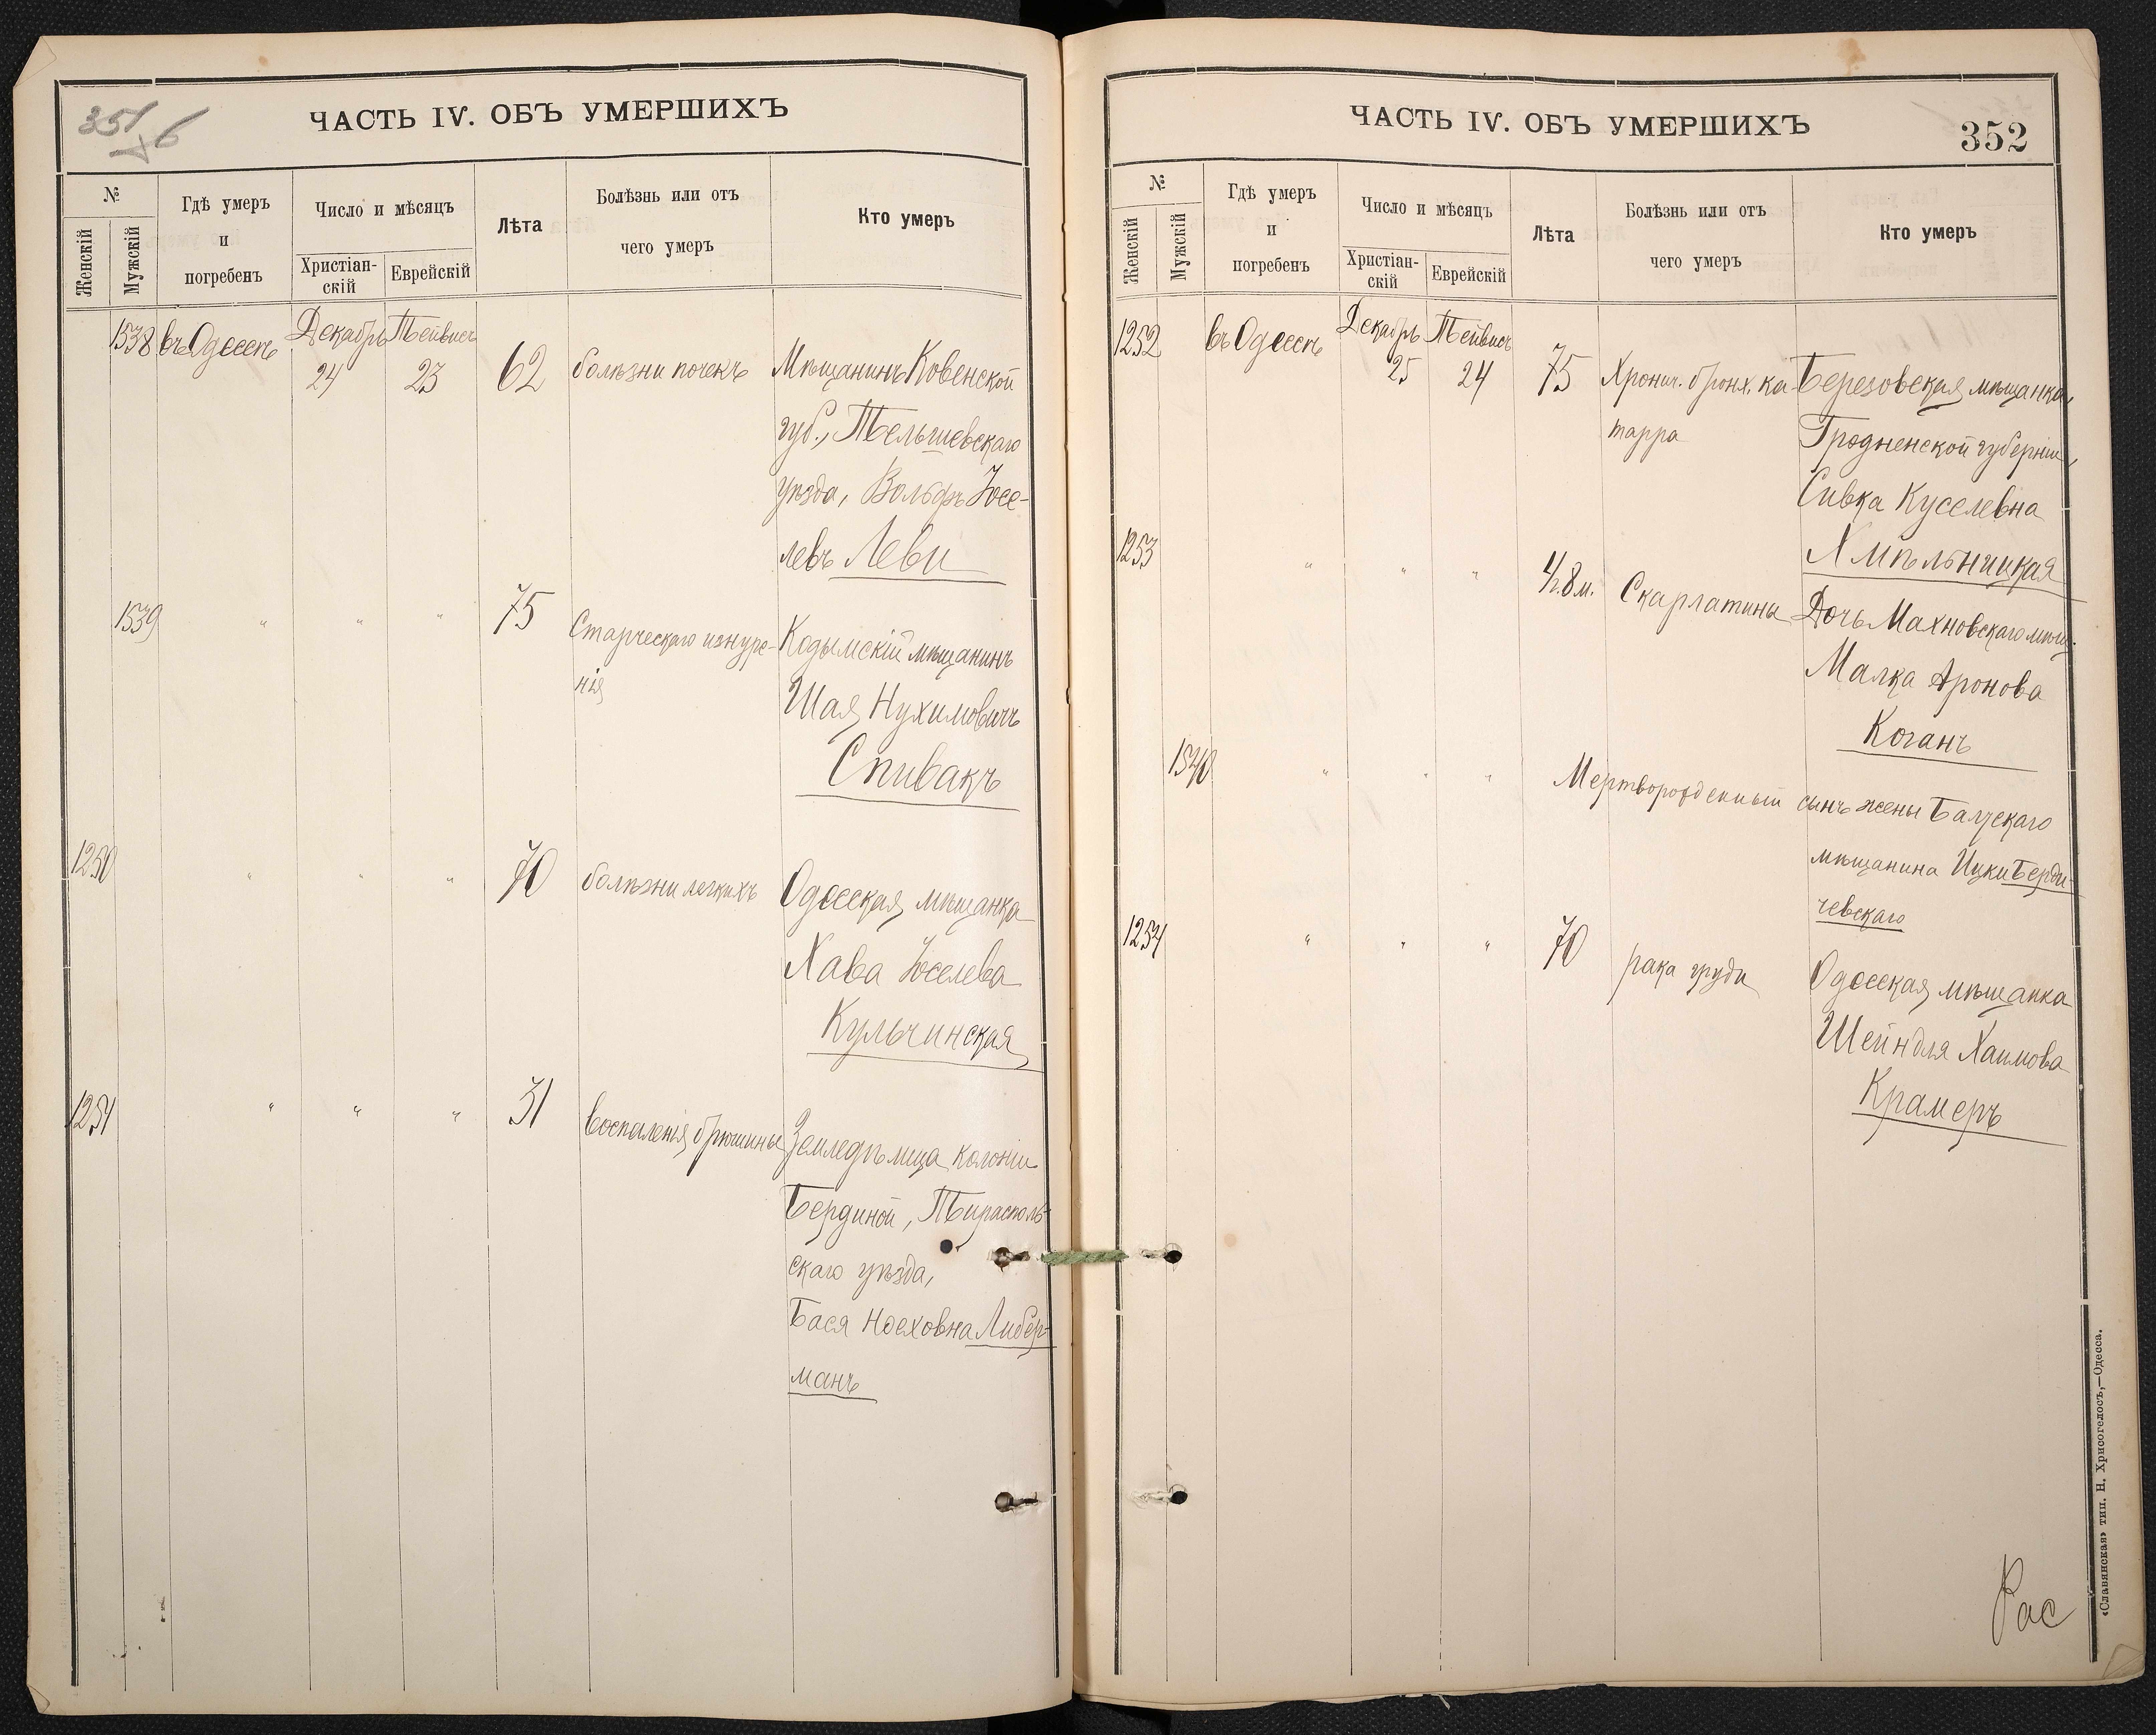 351
ЧАСТЬ IV. ОБЪ УМЕРШИХЪ
№
Женскій
Мужскій
Гдѣ умеръ
и
погребенъ
Число и мѣсяцъ
Христіан-
скій
Еврейскій
Лѣта
Болѣзнь или отъ
чего умеръ
Кто умеръ
1538 въ Одессѣ Декабрь Тейвисъ
24 23 62 болѣзни почекъ Мѣщанинъ Ковенской
губ., Тельшевскаго
уѣзда, Вольфъ Іосе-
левъ Леви
1539 " " " 75 Старческаго изнуре- Кодымскій мѣщанинъ
нія Шая Нухимовичъ
Спивакъ
1250 " " " 70 болѣзни легкихъ Одесская мѣщанка
Хава Іоселева
Кульчинская
1251 " " " 31 воспаленія брюшины Земледѣлица колоніи
Бердиной, Тирасполь-
скаго уѣзда,
Бася Носховна Либер-
манъ
ЧАСТЬ IV. ОБЪ УМЕРШИХЪ
352
№
Женскій
Мужскій
Гдѣ умеръ
и
погребенъ
Число и мѣсяцъ
Христіан-
скій
Еврейскій
Лѣта
Болѣзнь или отъ
чего умеръ
Кто умеръ
1252 въ Одессѣ Декабрь Тейвисъ
25 24 75 Хронич. бронх. ка- Березовская мѣщанка,
тарра Гродненской губерніи,
Сивка Куселевна
Хмѣльницкая
1253 " " " 4 г. 8 м. Скарлатины Дочь Махновскаго мѣщ.
Малка Аронова
Коганъ
1540 " " " Мертворожденный сынъ жены Балтскаго
мѣщанина Ицки Берди-
чевскаго
1254 " " " 70 рака груди Одесская мѣщанка
Шейндля Хаимова
Крамеръ
Рас
«Славянская» тип. Н. Хрисогелосъ,—Одесса.